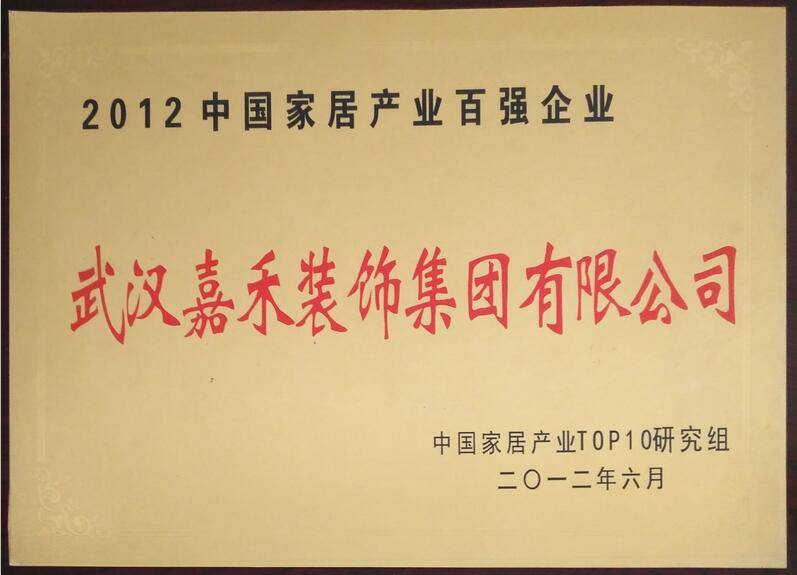 2012中国家居产业百强企业
武汉嘉禾装饰集团有限公司
中国家居产业TOP10研究组
二〇一二年六月